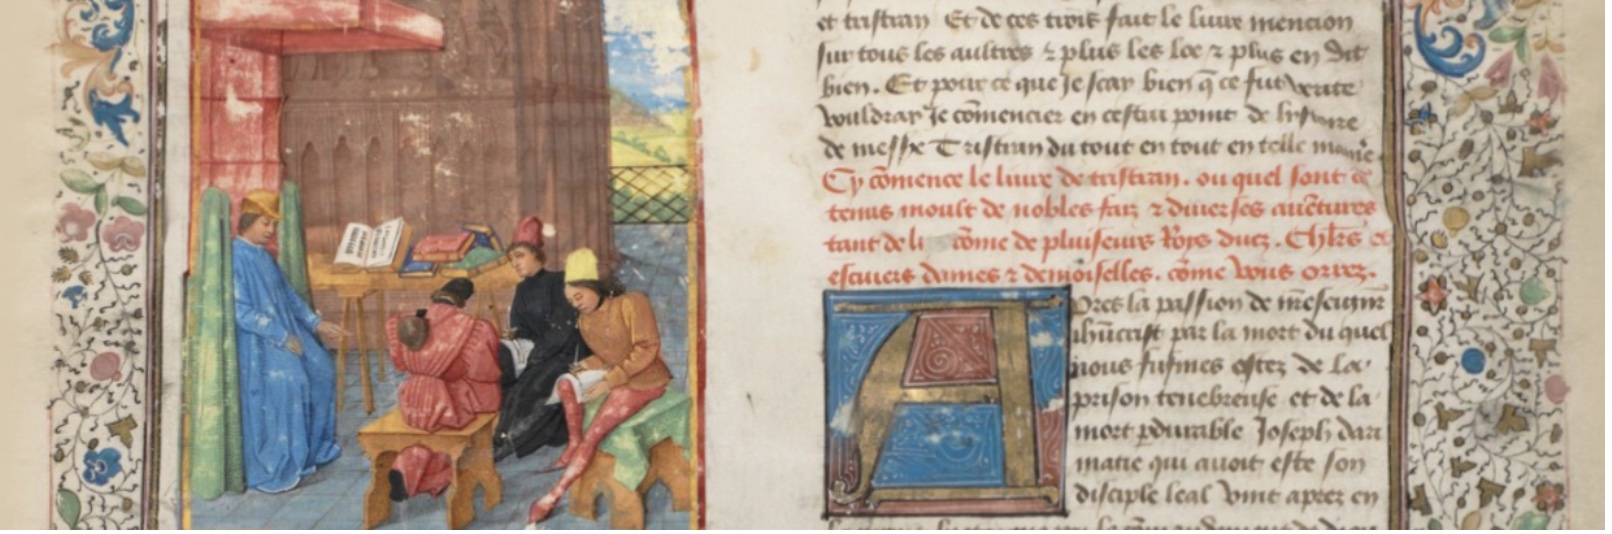 et tristran Et de ces trois fait le livre mencion
sur tous les aultres & plus les loe & plus en dit
bien. Et pour ce que je scay bien q̃ ce fut verite
vouldray Je cõmencier en cestui point de
de messe Tristran du tout en tout en telle
Cy cõmence le livre de tristran. ou quel sont cõ
tenus moult de nobles fais & diverses avẽtures
tant de li cõme de pluiseurs Roys ducz. Chlr̃s et
escuiers dames & demoiselles. cõme vous orrez.
Apres la passion de
ihũcrist par la mort du quel
nous fusmes ostez de la
prison tenebreuse et de la
mort pdurable Joseph dari
matie qui avoit este son
disciple leal vint aprez en